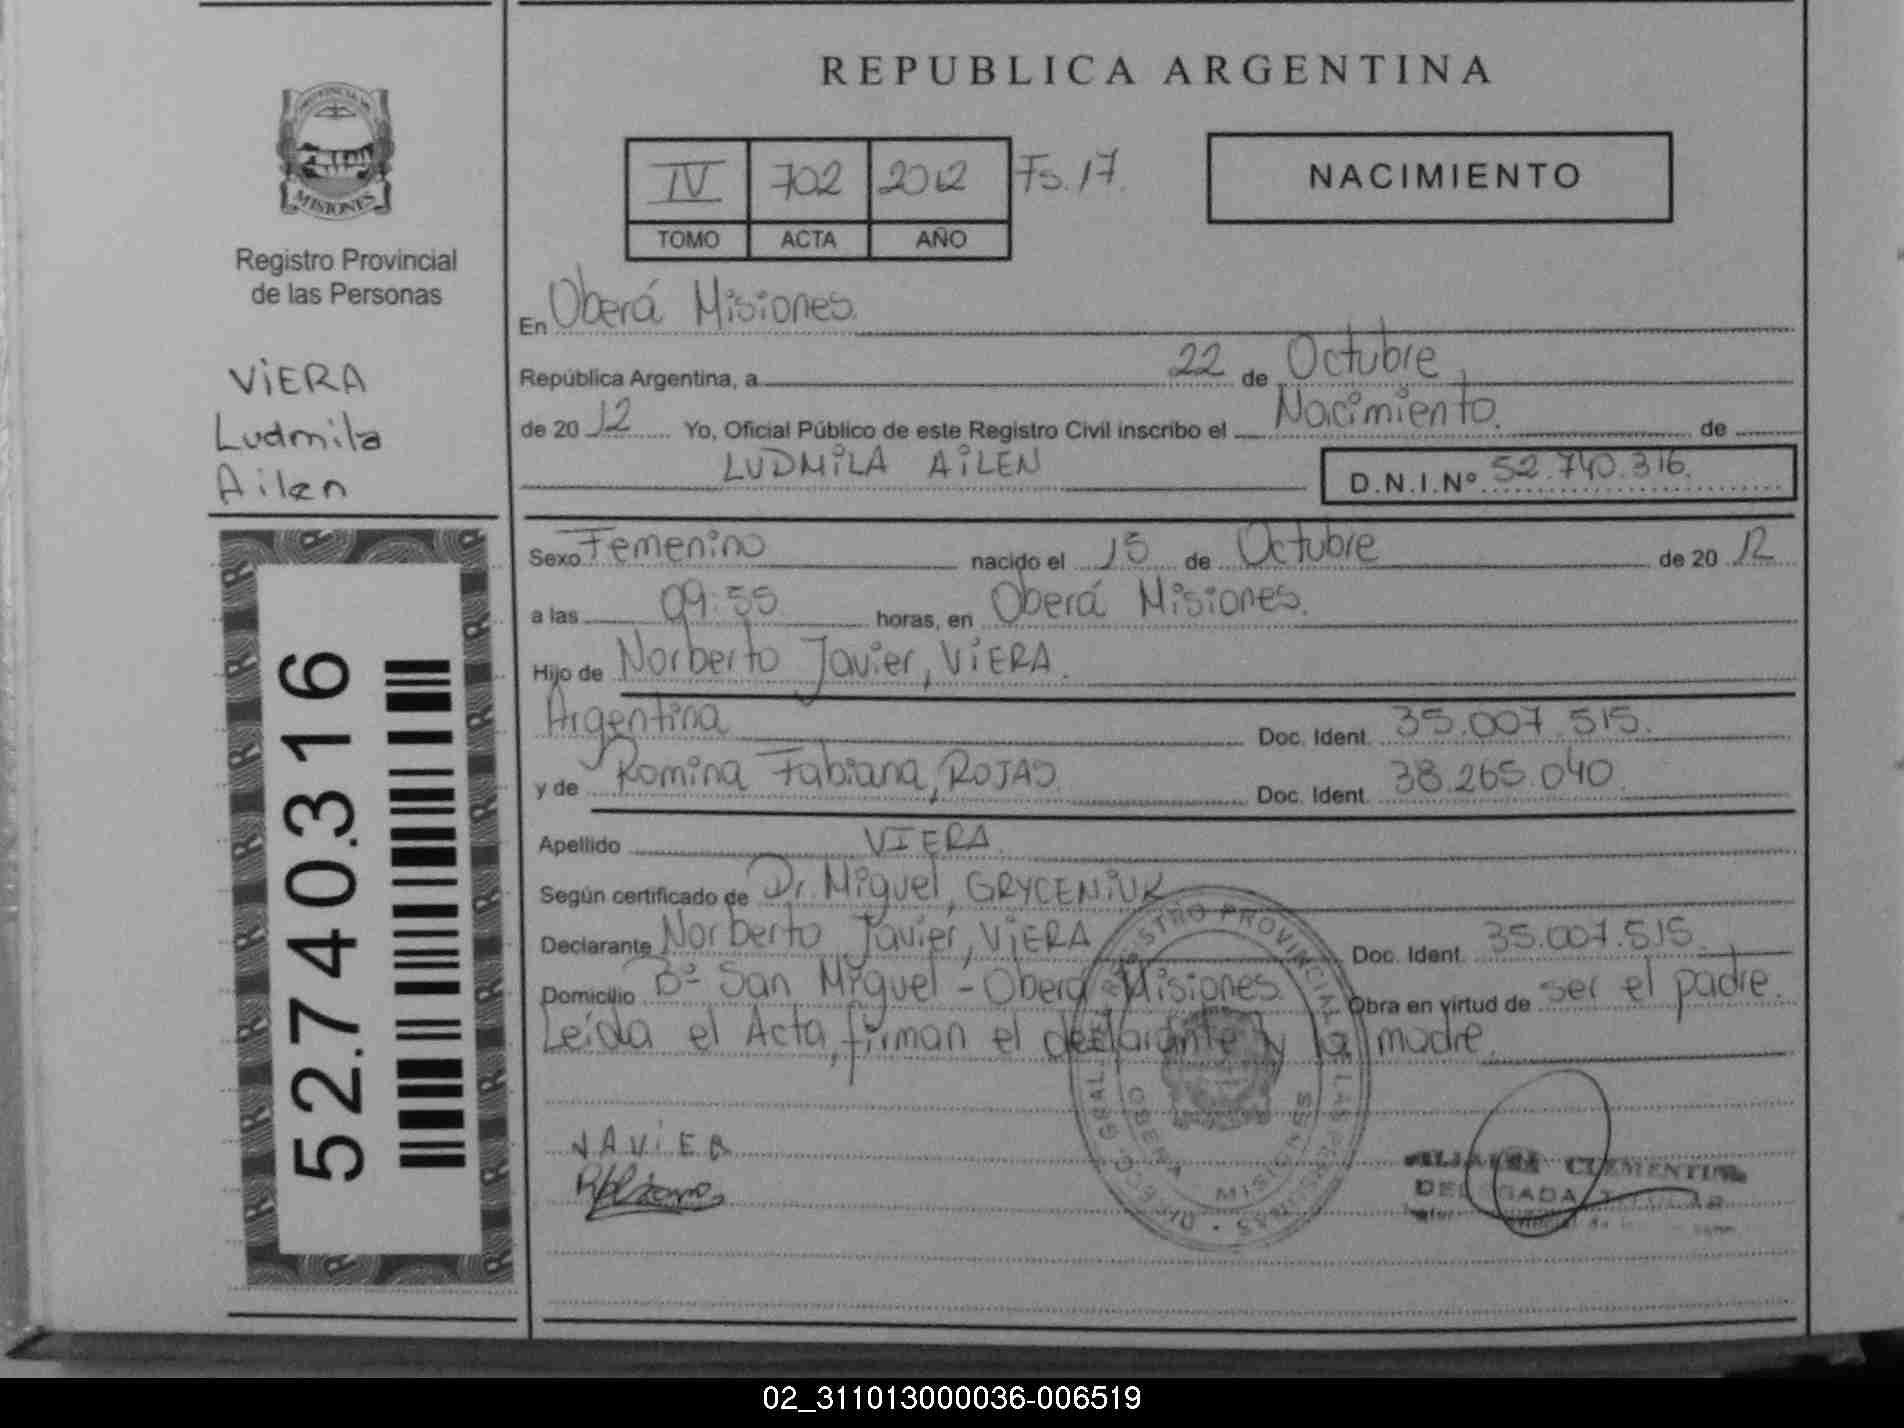 REPUBLICA ARGENTINA
PROVINCIA DE
MISIONES
Registro Provincial
de las Personas
VIERA
Ludmila
Ailen
52.740.316
IV 702 2012 Fs. 17.
TOMO ACTA AÑO
NACIMIENTO
En Oberá Misiones.
República Argentina, a 22 de Octubre
de 2012 Yo, Oficial Público de este Registro Civil inscribo el Nacimiento. de
LUDMILA AILEN D.N.I.Nº 52.740.316.
Sexo Femenino nacido el 15 de Octubre de 2012
a las 09:55 horas, en Oberá Misiones.
Hijo de Norberto Javier, VIERA.
Argentina Doc. Ident. 35.007.515.
y de Romina Fabiana, ROJAS Doc. Ident. 38.265.040.
Apellido VIERA.
Según certificado de Dr. Miguel, GRYCENIUK
Declarante Norberto Javier, VIERA Doc. Ident. 35.007.515.
Domicilio Bº San Miguel - Oberá Misiones. Obra en virtud de ser el padre.
Leída el Acta, firman el declarante y la madre.
REGISTRO PROVINCIAL DE LAS PERSONAS
MISIONES
JAVIER
CLEMENTINA
DELEGADA TITULAR
02_311013000036-006519